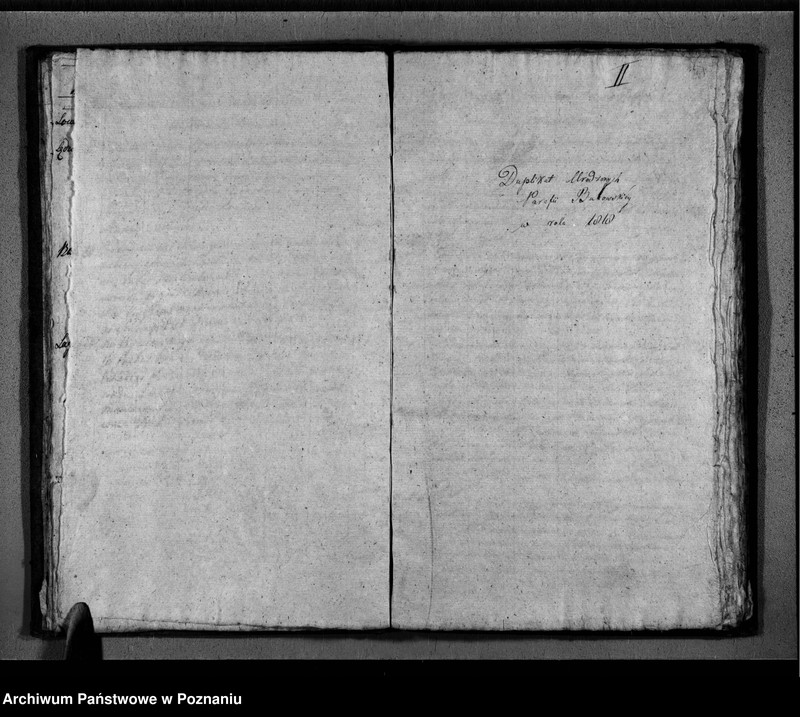 II
Duplikat Urodzonych
Parafii
w roku 1818
Archiwum Państwowe w Poznaniu